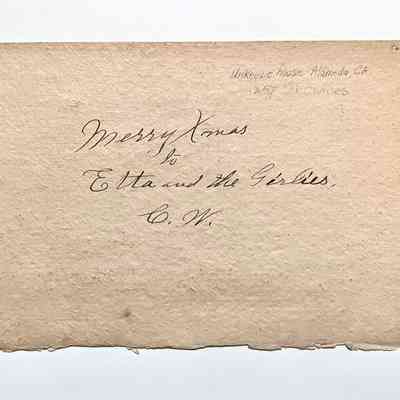 Unknown House Alameda, CA
Merry Xmas
to
Etta and the Girlies.
C. W.